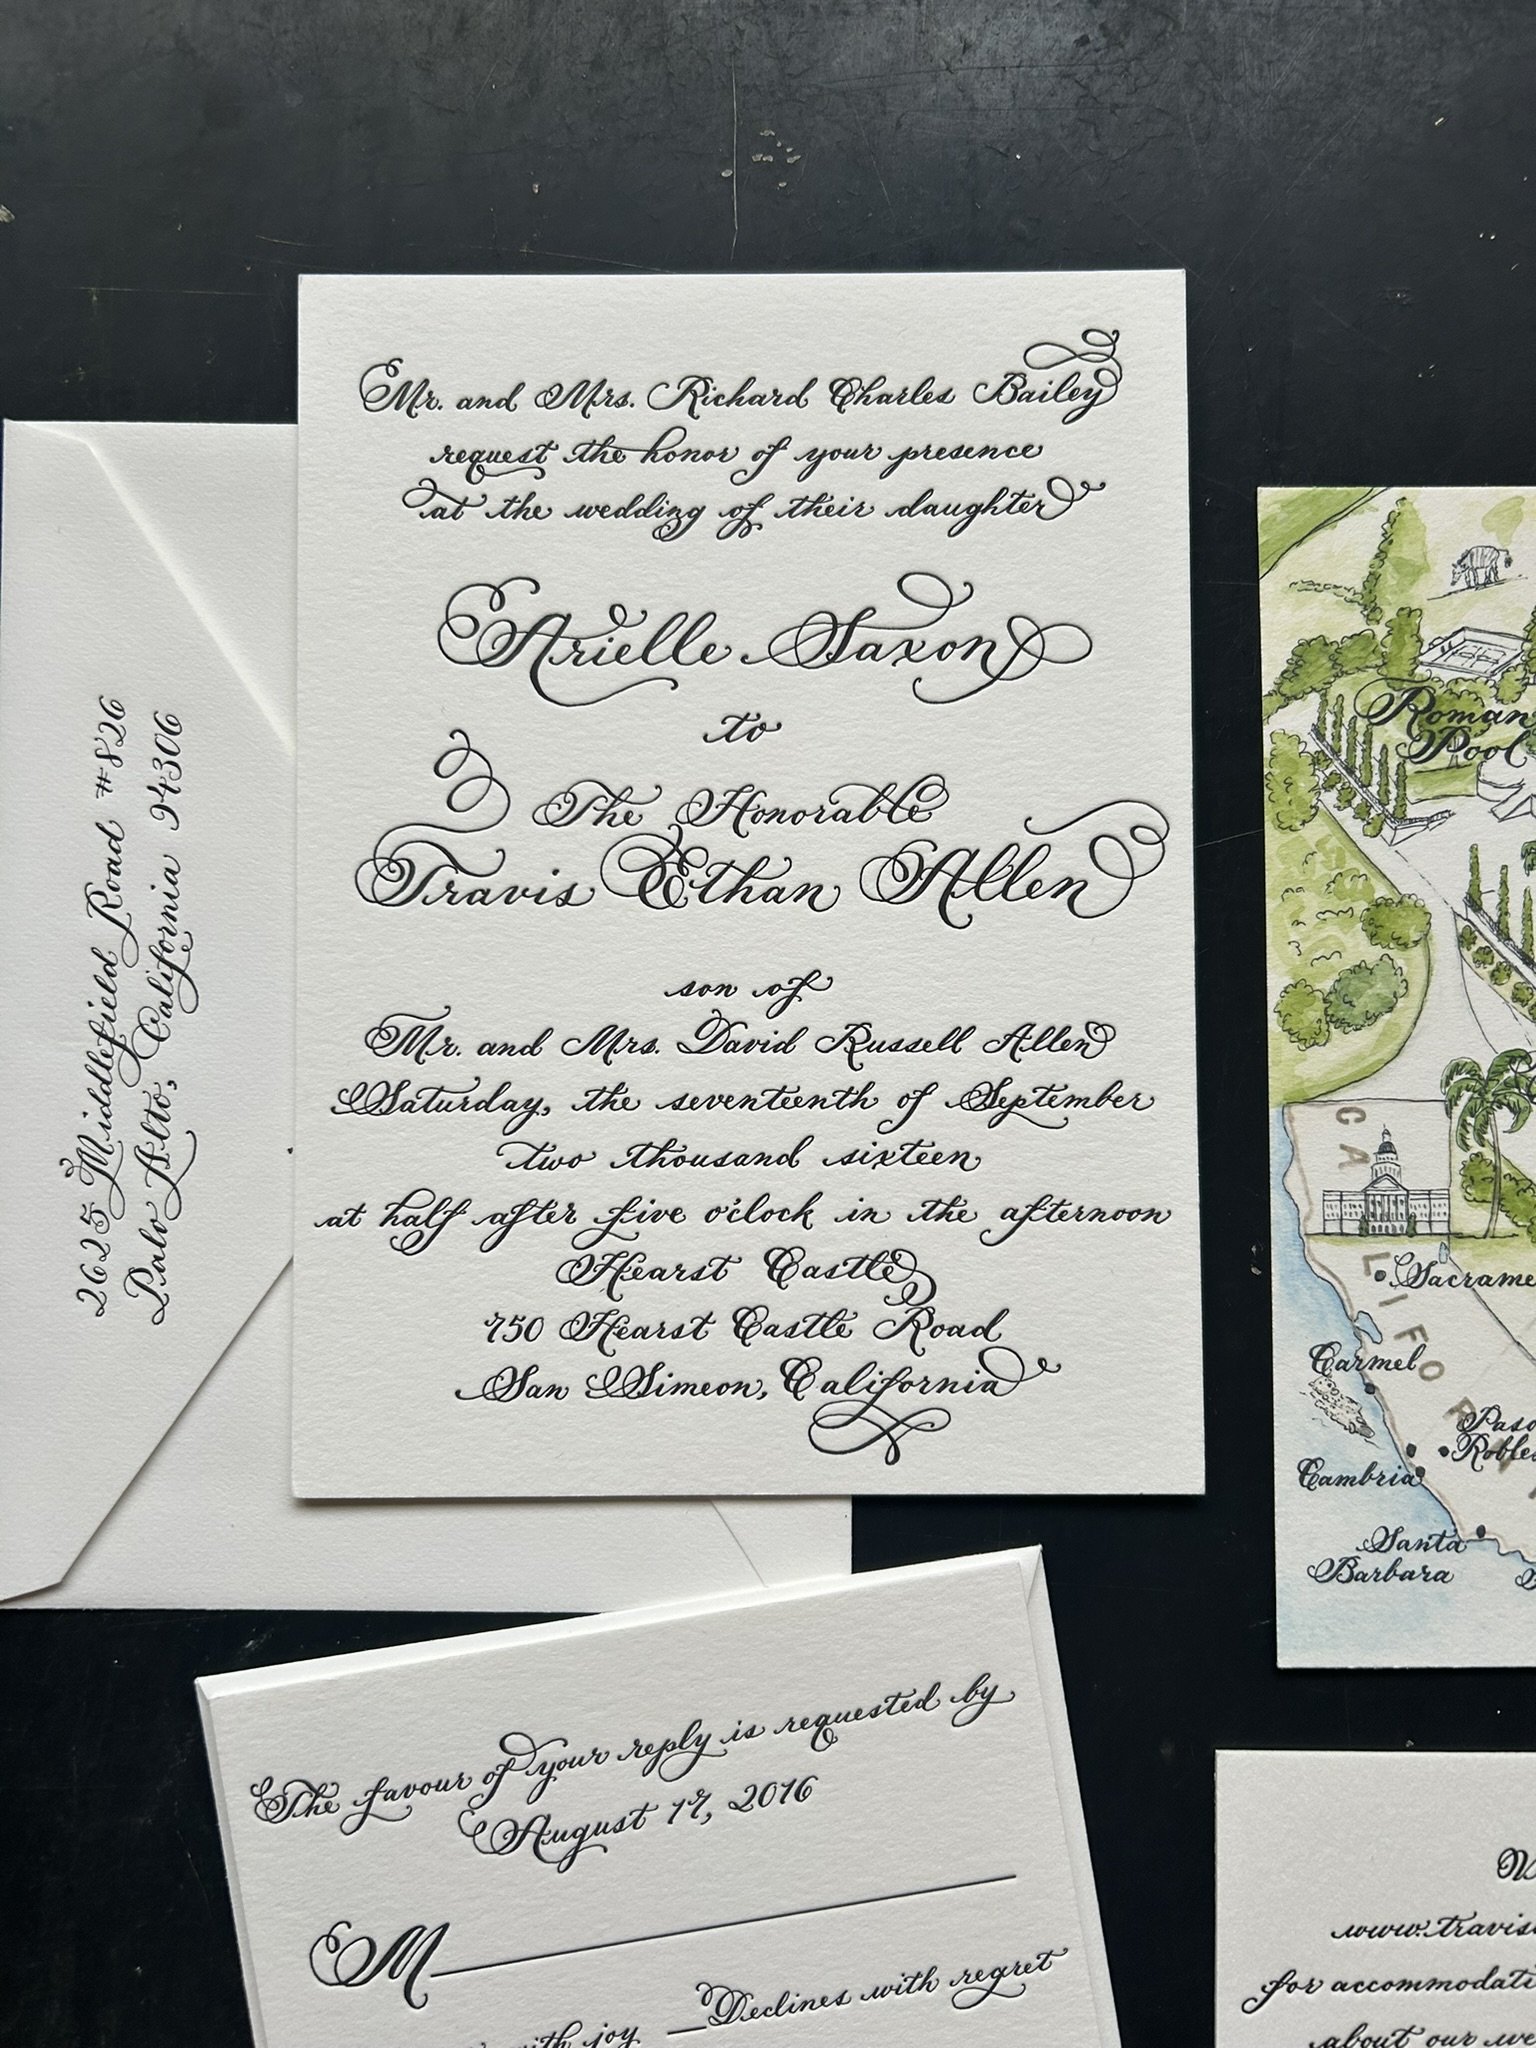 Mr. and Mrs. Richard Charles Bailey
request the honor of your presence
at the wedding of their daughter
Arielle Saxon
to
The Honorable
Travis Ethan Allen
son of
Mr. and Mrs. David Russell Allen
Saturday, the seventeenth of September
two thousand sixteen
at half after five o'clock in the afternoon
Hearst Castle
750 Hearst Castle Road
San Simeon, California
2625 Middlefield Road #826
Palo Alto, California 94306
Roman
Pool
CALIFOR
Carmel
Cambria
Santa
Barbara
The favour of your reply is requested by
August 17, 2016
M
with joy
Declines with regret
about our